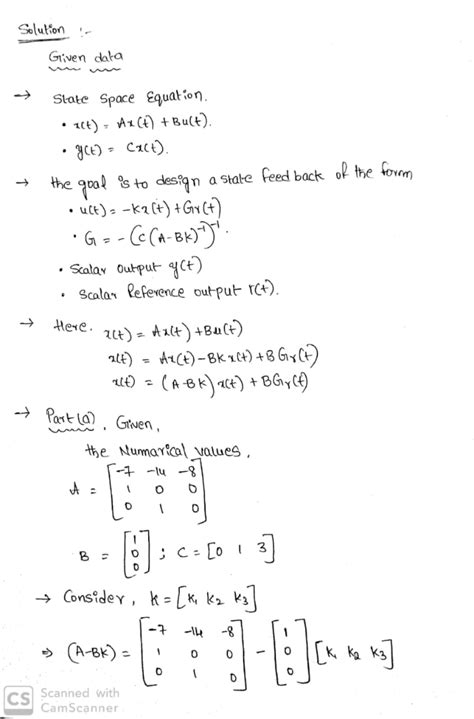 Solution :-
Given data
→ State Space Equation.
• x(t) = Ax(t) + Bu(t).
• y(t) = Cx(t).
→ the goal is to design a state feed back of the form
• u(t) = -Kx(t) + Gr(t)
• G = - (C (A-BK)⁻¹)⁻¹.
• Scalar output y(t)
• Scalar Reference output r(t).
→ Here. x(t) = Ax(t) + Bu(t)
x(t) = Ax(t) - BKx(t) + BGr(t)
x(t) = (A-BK) x(t) + BGr(t)
→ Part (a). Given,
the Numarical values,
A = [-7 -14 -8
1 0 0
0 1 0]
B = [1
0
0] ; C = [0 1 3]
→ Consider, K = [K₁ K₂ K₃]
⇒ (A-BK) = [-7 -14 -8
1 0 0
0 1 0] - [1
0
0] [K₁ K₂ K₃]
CS Scanned with
CamScanner